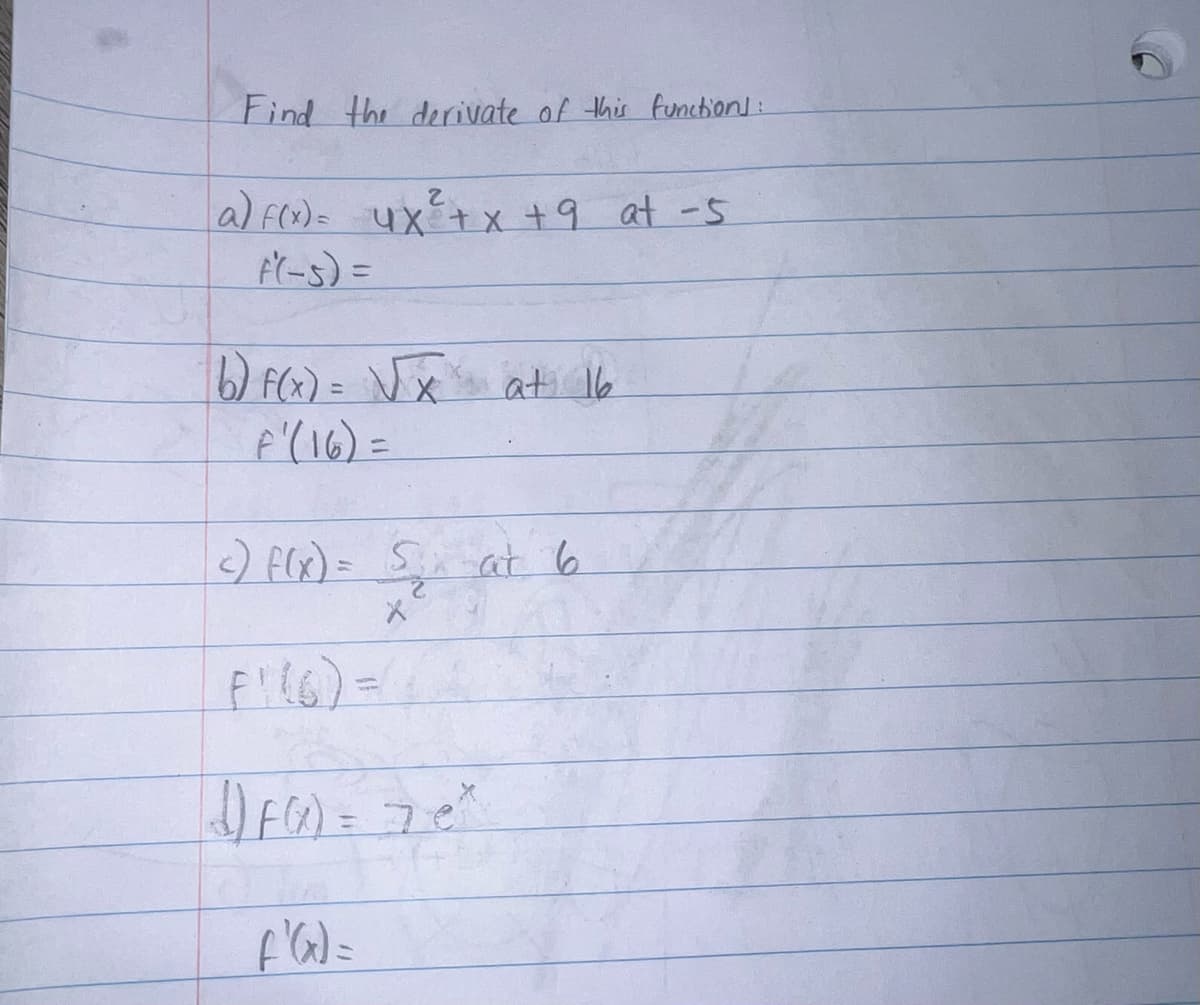 Find the derivate of this functions:
a) f(x) = 4x² + x + 9 at -5
f'(-5) =
b) f(x) = √x at 16
f'(16) =
c) f(x) = 5/x² at 6
F'(6) =
d) F(x) = 7e^x
f'(x) =